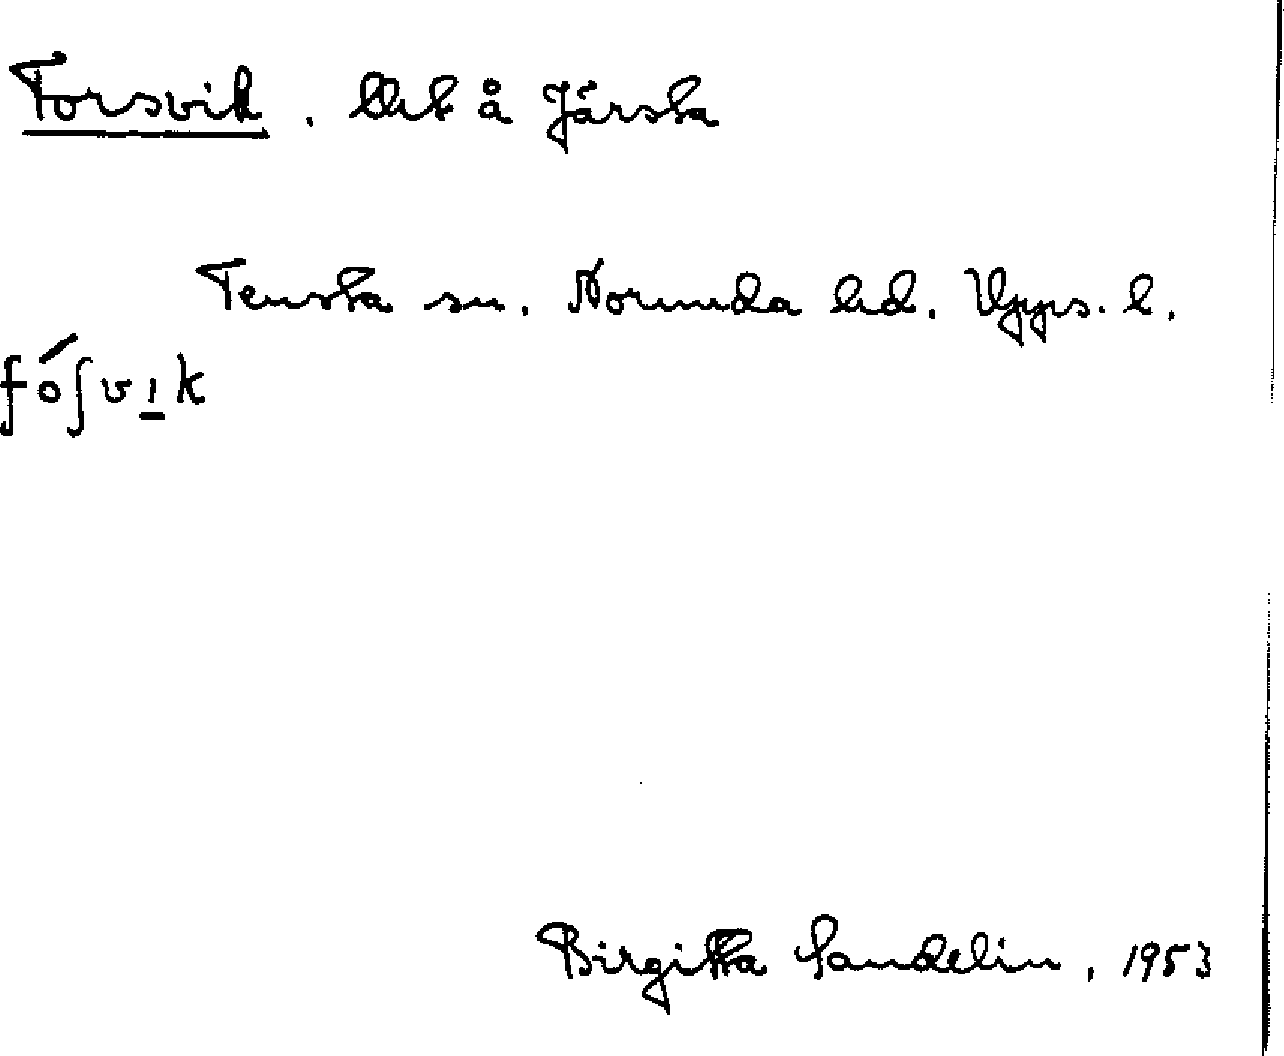 Forsvik. Utt å Järsta
Tensta sn. Norunda hd. Upps. l.
fóʃvık
Birgitta Sandelin, 1953